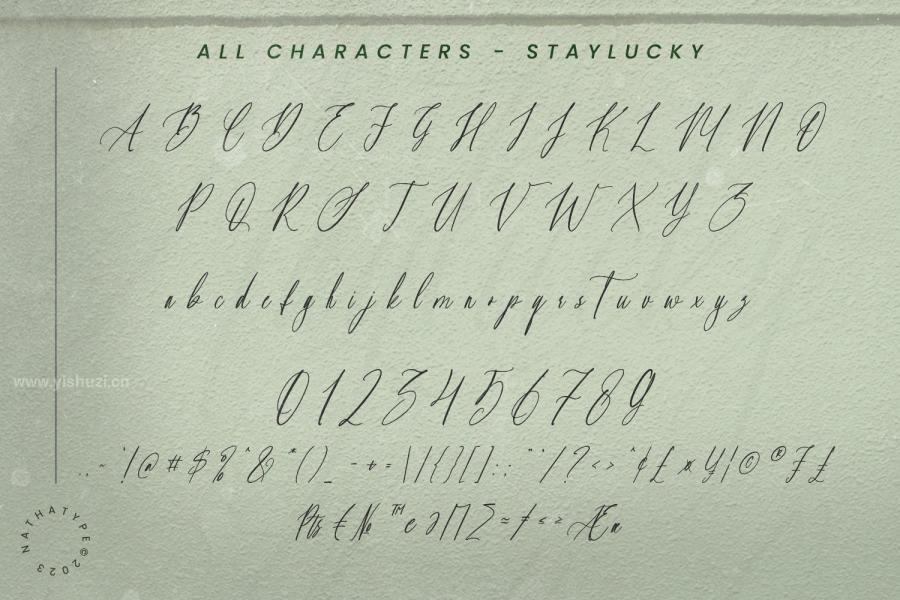 ALL CHARACTERS - STAYLUCKY
A B C D E F G H I J K L M N O
P Q R S T U V W X Y Z
a b c d e f g h i j k l m n o p q r s t u v w x y z
0 1 2 3 4 5 6 7 8 9
www.yishuzi.cn
~ ` ! @ # $ % ^ & * ( ) _ - + = \ | { } [ ] : ; " ' / ? < > ¢ £ ¤ ¥ ¦ © ® ₣ ₤
₧ € № ™ ℮ ∂ ∏ ∑ ≈ ≠ ≤ ≥ Æ
NATHATYPE©2023